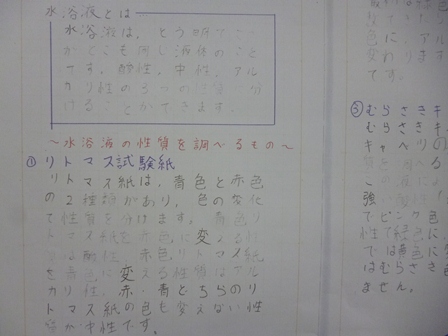 水溶液とは
水溶液は、とう明でこ
がどこも同じ液体のこと
です。酸性、中性、アル
カリ性の3つの性質に分
けることができます。
〜水溶液の性質を調べるもの〜
①リトマス試験紙
リトマス紙は、青色と赤色
の2種類があり、色の変化
で性質を分けます。青色リ
トマス紙を赤色に変える性
は酸性、赤色リトマス紙
を青色に変える性質はアル
カリ性、赤・青どちらのリ
トマス紙の色も変えない性
質が中性です。
色に、アル
変わります
です。
③むらさきキ
むらさきキ
キャベツの
強
でピンク色
性で緑色に、
では黄色に
はむらさき
ません。